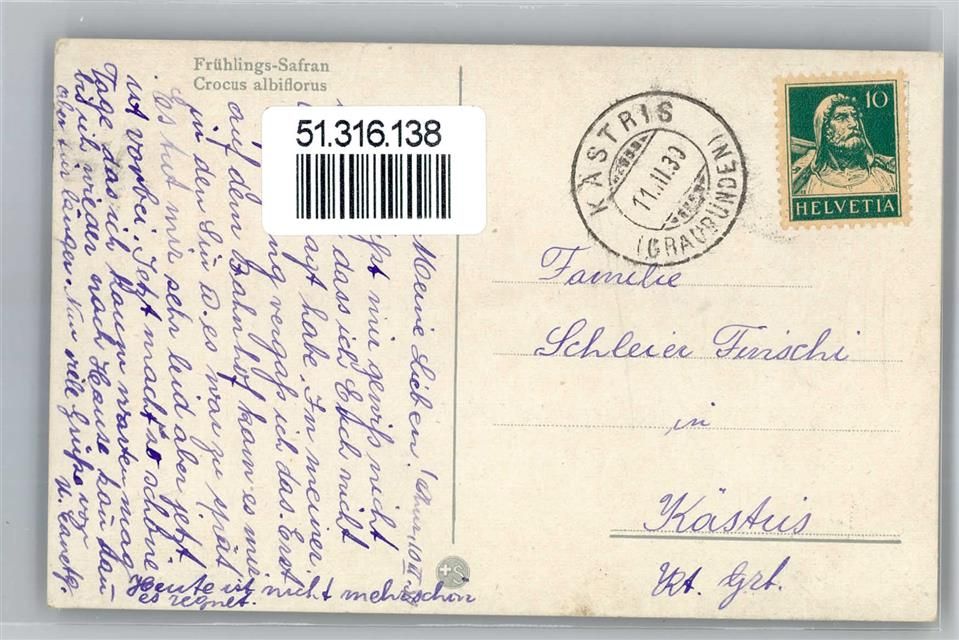 Frühlings-Safran
Crocus albiflorus
51.316.138
KÄSTRIS
11.III.30
(GRAUBÜNDEN)
10
HELVETIA
Familie
Schleier
in
Kästris
Kt. Grb.
Meine Lieben!
mir gewiss nicht
dass ich Euch nicht
agt habe. In meiner
ng vergass ich das. Erst
auf dem Bahnhof kam es mir
in den Sin u. es war zu spät
Es tut mir sehr leid aber jetzt
ist vorbei. Jetzt macht so schöne
Tage dass ich kaum warten mag
bis ich wieder nach Hause kann
aber Nun viele Grüsse von
Heute ist nicht mehr schön
es regnet.